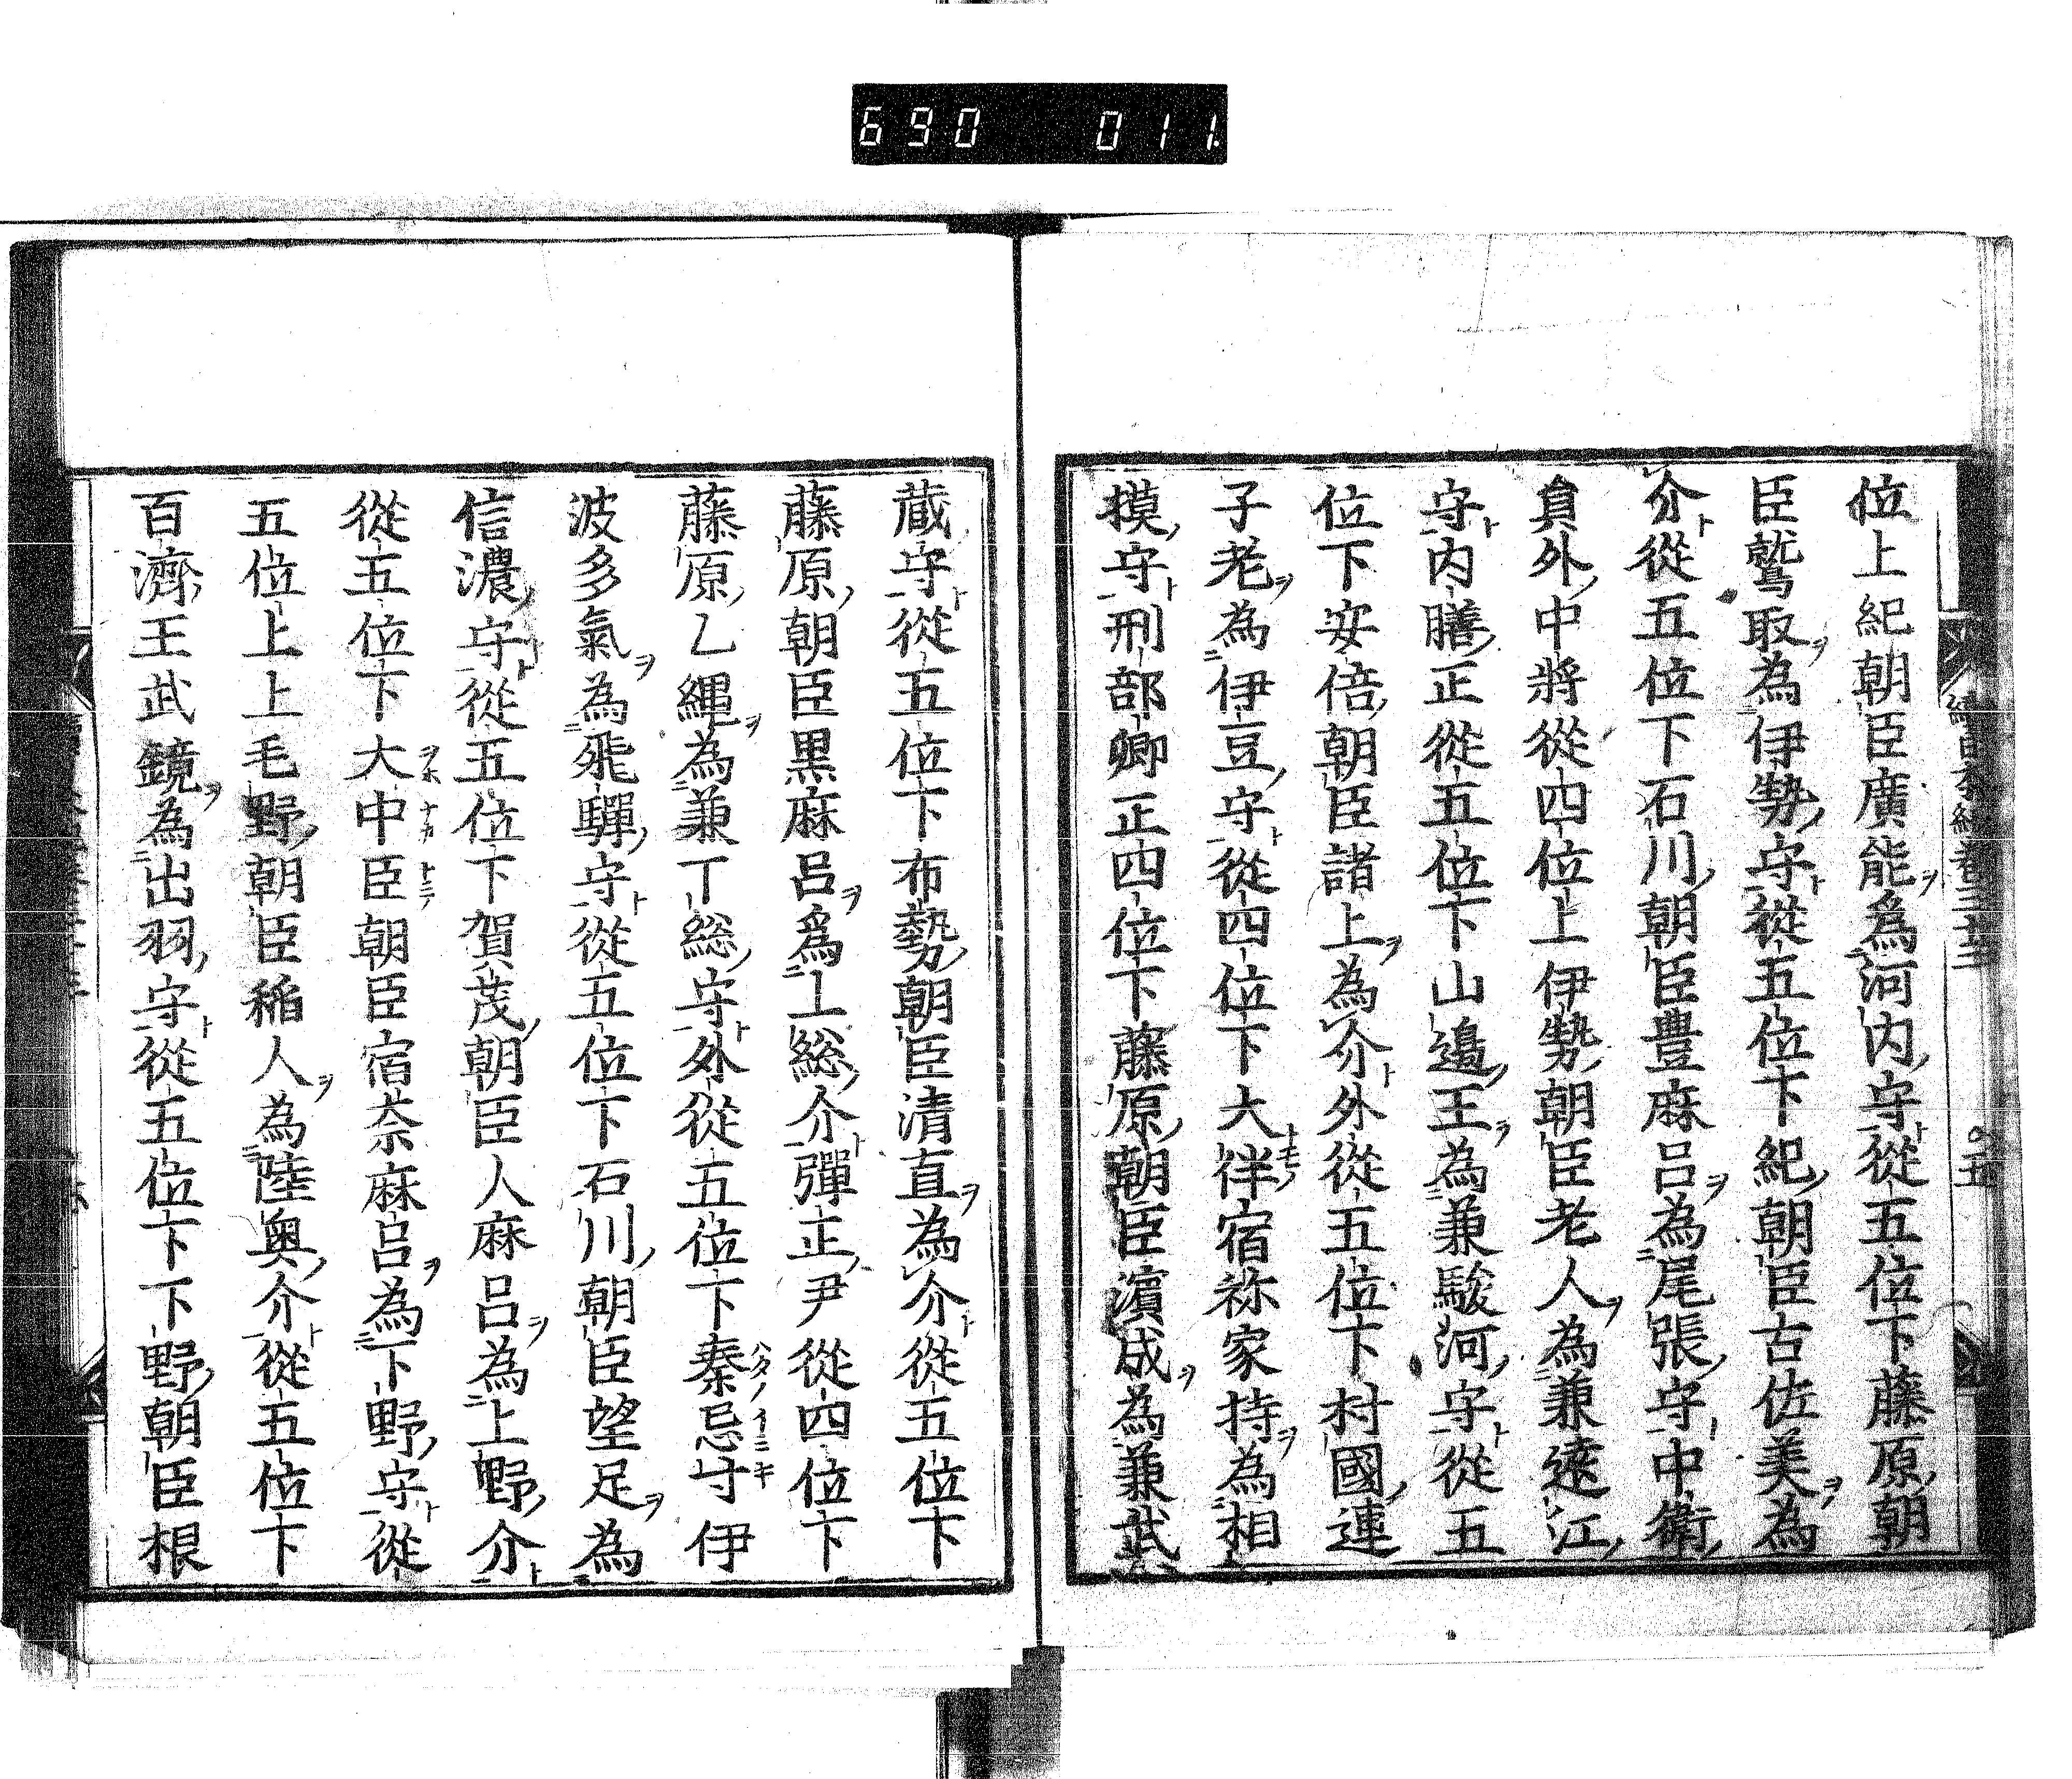 690 011.
位上紀朝臣廣能爲河内守從五位下藤原朝
臣鷲取為伊勢守從五位下紀朝臣古佐美為
介從五位下石川朝臣豊麻呂為尾張守中衛
貟外中將從四位上伊勢朝臣老人為兼遠江
守内膳正從五位下山邊王為兼駿河守從五
位下安倍朝臣諸上為介外從五位下村國連
子老為伊豆守從四位下大伴宿祢家持為相
摸守刑部卿正四位下藤原朝臣濱成為兼武
蔵守從五位下布勢朝臣清直為介從五位下
藤原朝臣黒麻呂爲上総介彈正尹從四位下
藤原乙繩為兼下総守外從五位下秦忌寸伊
波多氣為飛驒守從五位下石川朝臣望足為
信濃守從五位下賀茂朝臣人麻呂為上野介
從五位下大中臣朝臣宿奈麻呂為下野守從
五位上上毛野朝臣稲人為陸奥介從五位下
百濟王武鏡為出羽守從五位下下野朝臣根